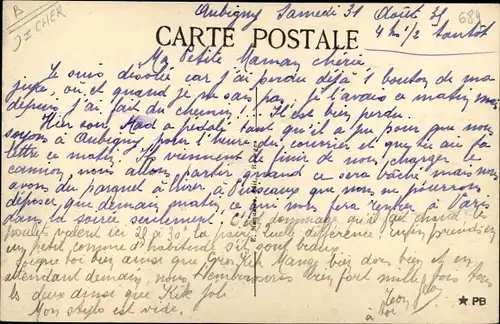 B
JJ CHER
Aubigny Samedi 31 Août 35
4 hs 1/2 tantôt
689
CARTE POSTALE
Ma Petite Maman chérie
Je suis désolée car j'ai perdu déjà 1 bouton de ma
jupe, où et quand je ne sais pas. Je l'avais ce matin mais
depuis j'ai fait du chemin! Il est bien perdu.
Hier soir, Mad a pédalé tant qu'il a pu pour que nous
soyons à Aubigny pour l'heure du courrier et que tu aie ta
lettre ce matin. Ils viennent de finir de nous charger le
camion, nous allons partir quand ce sera bâché mais nous
avons du parquet à livrer à Puiseaux que nous ne pourrons
déposer que demain matin, ce qui nous fera rentrer à Paris
dans la soirée seulement. C'est dommage qu'il fait chaud. Les
poulets valent ici 28 à 30, la paire, quelle différence! Enfin prendrai
en petit comme d'habitude s'il sont beaux.
Soigne toi bien ainsi que Gros Kik Mange bien dors bien et en
attendant demain, nous t'embrassons bien fort mille fois tous
les deux ainsi que Kik joli
Mon stylo est vide,
à toi
Léon
★ PB